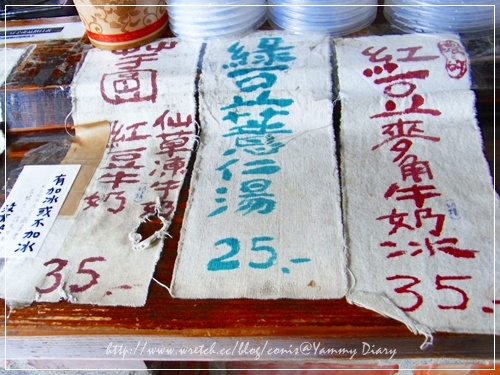 芋圓
仙草凍牛奶
紅豆牛奶
35.-
有加冰或不加冰
綠豆薏仁湯
25.-
紅豆麥角牛奶冰
35.-
http://www.wretch.cc/blog/conis@Yammy Diary